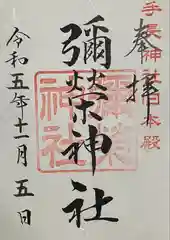 手長神社日本殿
奉拝
彌榮神社
令和五年十一月五日